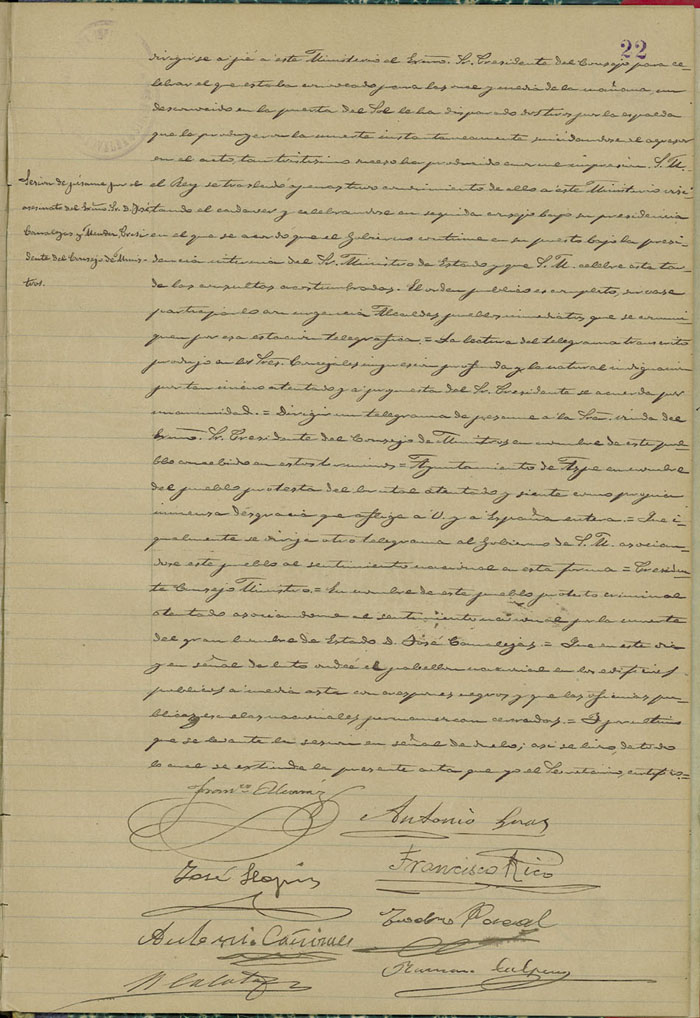 22
dirigirse a pié a este Ministerio el Excmo. Sr. Presidente del Consejo para ce-
lebrar el que estaba convocado para las once y media de la mañana, un
desconocido en la puerta del Sol le ha disparado dos tiros por la espalda
que le produjeron la muerte instantaneamente, suicidandose el agresor
en el acto, tan tristisimo suceso ha producido enorme impresion. S. M.
el Rey se traslado apenas tuvo conocimiento de ello a este Ministerio visi-
tando el cadaver y celebrandose en seguida consejo bajo su presidencia
en el que se acordo que el Gobierno continue en su puesto bajo la presi-
dencia interina del Sr. Ministro de Estado y que S. M. celebre esta tar-
de las consultas acostumbradas. El orden publico es completo, sirvase
participarlo con urgencia Alcaldes pueblos inmediatos, que se comuni-
quen por esa estacion telegrafica = La lectura del telegrama transcrito
produjo en los Sres. Concejales impresion profunda y la natural indignacion
por tan inicuo atentado y a propuesta del Sr. Presidente se acuerda por
unanimidad. = Dirigir un telegrama de pesame a la Sra. viuda del
Excmo. Sr. Presidente del Consejo de Ministros en nombre de este pue-
blo concebido en estos terminos = Ayuntamiento de Aspe en nombre
del pueblo protesta del brutal atentado y siente como propia
inmensa desgracia que aflige a V. y a España entera. = Que i-
gualmente se dirija otro telegrama al Gobierno de S. M. asocian-
dose este pueblo al sentimiento nacional en esta forma = Presiden-
te Consejo Ministros = En nombre de este pueblo protesto criminal
atentado asociandome al sentimiento nacional por la muerte
del gran hombre de Estado D. José Canalejas = Que en este dia
y en señal de luto ondeé el pabellon nacional en los edificios
publicos a media asta con crespones negros y que las oficinas pu-
blicas, escuelas nacionales permanezcan cerradas. = Y por ultimo
que se levante la sesion en señal de duelo; asi se hizo, de todo
lo cual se extiende la presente acta que yo el Secretario, certifico. =
Sesion de pésame por el
asesinato del Excmo. Sr. D. José
Canalejas y Mendez, Presi-
dente del Consejo de Minis-
tros.
Franco Alvarez
Antonio
José
Francisco Rico
Antonio Cañizares
Teodoro Pascal
Ramon